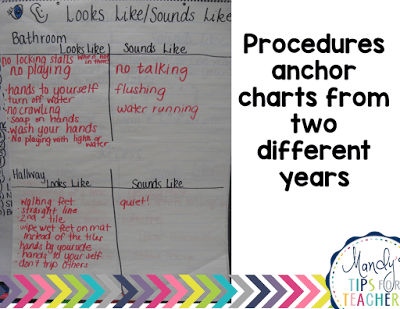 Looks Like/Sounds Like
Bathroom
Looks Like
Sounds Like
no locking stalls when not in there
no playing
hands to yourself
turn off water
no crawling
soap on hands
wash your hands
No playing with lights or water
no talking
flushing
water running
Hallway
Looks Like
Sounds Like
walking feet
straight line
2nd tile
wipe wet feet on mat
instead of the tiles
hands by your side
hands to your self
don't trip others
quiet!
Procedures
anchor
charts from
two
different
years
Mandy's
TIPS FOR
TEACHERS